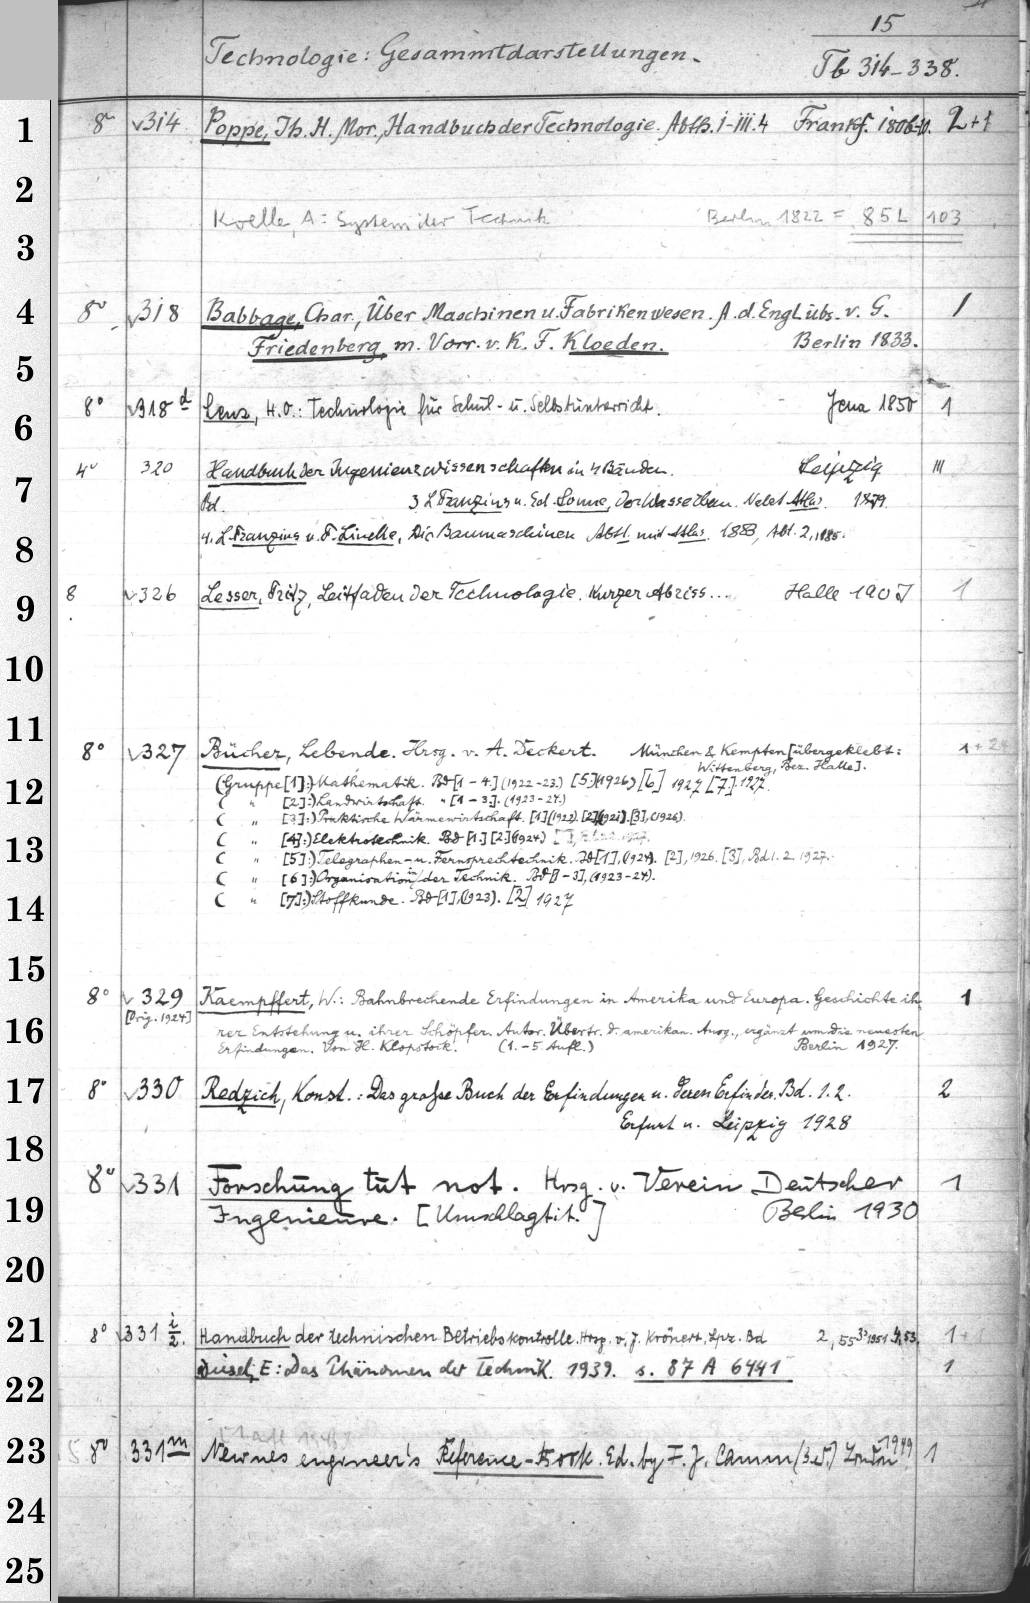 15
Technologie: Gesammtdarstellungen.
Tb 314-338.
1 8° v314 Poppe, Th. H. Mor., Handbuch der Technologie. Abth. I-III.4 Frankf. 1806-10. 2+1
2
Koelle, A: System der Technik Berlin 1822 = 85 L 103
3
4 8° v318 Babbage, Char., Über Maschinen u. Fabrikenwesen. A. d. Engl. übs. v. G. 1
Friedenberg, m. Vorr. v. K. F. Kloeden. Berlin 1833.
5
6 8° v318 d Lenz, H.O.: Technologie für Schul- u. Selbstunterricht. Jena 1850 1
4° 320 Handbuch der Ingenieurwissenschaften in 4 Bänden. Leipzig III
7 Bd. 3 L. Franzius u. Ed. Sonne, Der Wasserbau. Nebst Atlas. 1879.
8 4. L. Franzius u. F. Lincke, Die Baumaschinen Abt. 1. mit Atlas. 1883, Abt. 2, 1885.
9 8 v326 Lesser, Fritz, Leitfaden der Technologie. Kurzer Abriss... Halle 1907 1
10
11
8° v327 Bücher, Lebende. Hrsg. v. A. Deckert. München & Kempten [übergeklebt: 1+24
Wittenberg, Bez. Halle].
12 (Gruppe [1]:) Mathematik. Bd [1-4.] (1922-23.) [5.] (1926) [6] 1927 [7]. 1927.
( " [2]:) Landwirtschaft. " [1-3.]. (1923-24.)
( " [3]:) Praktische Wärmewirtschaft. [1] (1922). [2] (1921). [3], (1926).
13 ( " [4]:) Elektrotechnik. Bd [1.] [2.] (1924)
( " [5]:) Telegraphen- u. Fernsprechtechnik. Bd [1], (1924). [2], 1926. [3], Bd 1. 2. 1927.
( " [6]:) Organisation in der Technik. Bd [1-3], (1923-24).
14 ( " [7]:) Stoffkunde. Bd [1], (1923). [2] 1927
15
8° v 329 Kaempffert, W.: Bahnbrechende Erfindungen in Amerika und Europa. Geschichte ih- 1
[Orig. 1924]
16 rer Entstehung u. ihrer Schöpfer. Autor. Übertr. d. amerikan. Ausg., ergänzt um die neuesten
Erfindungen. Von H. Klopstock. (1.-5. Aufl.) Berlin 1927.
17 8° v330 Redzich, Konst.: Das große Buch der Erfindungen u. deren Erfinder. Bd. 1. 2. 2
Erfurt u. Leipzig 1928
18
8° v331 Forschung tut not. Hrsg. v. Verein Deutscher 1
19 Ingenieure. [Umschlagtit.] Berlin 1930
20
21 8° v331 i/2. Handbuch der technischen Betriebskontrolle. Hrsg. v. J. Krönert, Lpz. Bd 2, 55 3, 1951 4, 53, 1+
22 Diesel, E: Das Phänomen der Technik. 1939. s. 87 A 6441 1
23 8° 331 m Newnes engineer's Reference-Book. Ed. by F. J. Camm (3. ed.) London 1949 1
24
25